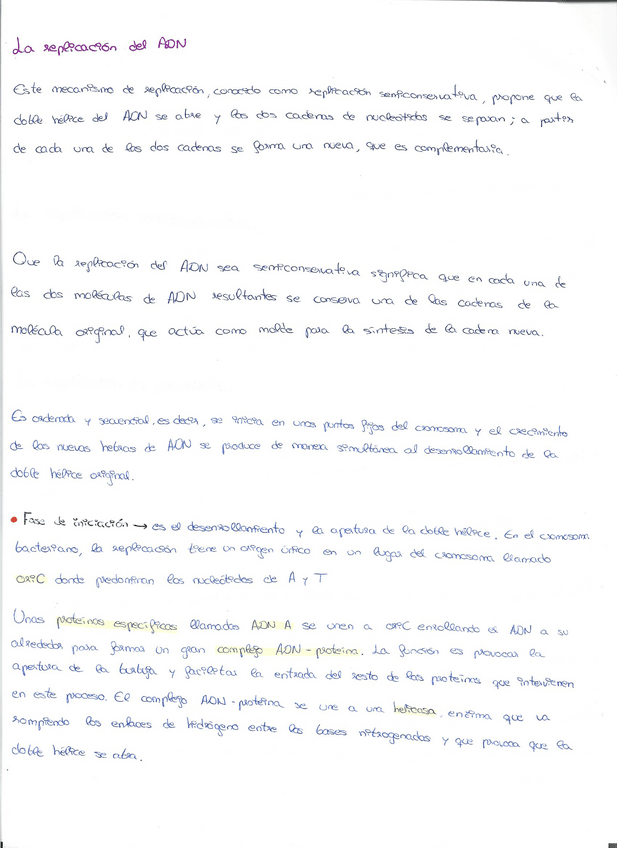 La replicación del ADN
Este mecanismo de replicación, conocido como replicación semiconservativa, propone que la
doble hélice del ADN se abre y las dos cadenas de nucleótidos se separan; a partir
de cada una de las dos cadenas se forma una nueva, que es complementaria.
Que la replicación del ADN sea semiconservativa significa que en cada una de
las dos moléculas de ADN resultantes se conserva una de las cadenas de la
molécula original, que actúa como molde para la síntesis de la cadena nueva.
Es ordenada y secuencial, es decir, se inicia en unos puntos fijos del cromosoma y el crecimiento
de las nuevas hebras de ADN se produce de manera simultánea al desenrollamiento de la
doble hélice original.
• Fase de iniciación → es el desenrollamiento y la apertura de la doble hélice. En el cromosoma
bacteriano, la replicación tiene un origen único en un lugar del cromosoma llamado
oriC donde predominan los nucleótidos de A y T
Unas proteínas específicas llamadas ADN A se unen a oriC enrollando el ADN a su
alrededor para formar un gran complejo ADN-proteína. La función es provocar la
apertura de la burbuja y facilitar la entrada del resto de las proteínas que intervienen
en este proceso. El complejo ADN-proteína se une a una helicasa, enzima que va
rompiendo los enlaces de hidrógeno entre las bases nitrogenadas y que provoca que la
doble hélice se abra.